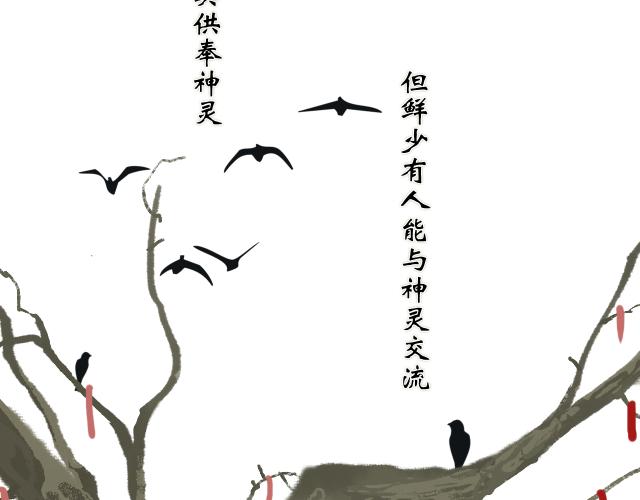 供奉神灵
但鲜少有人能与神灵交流